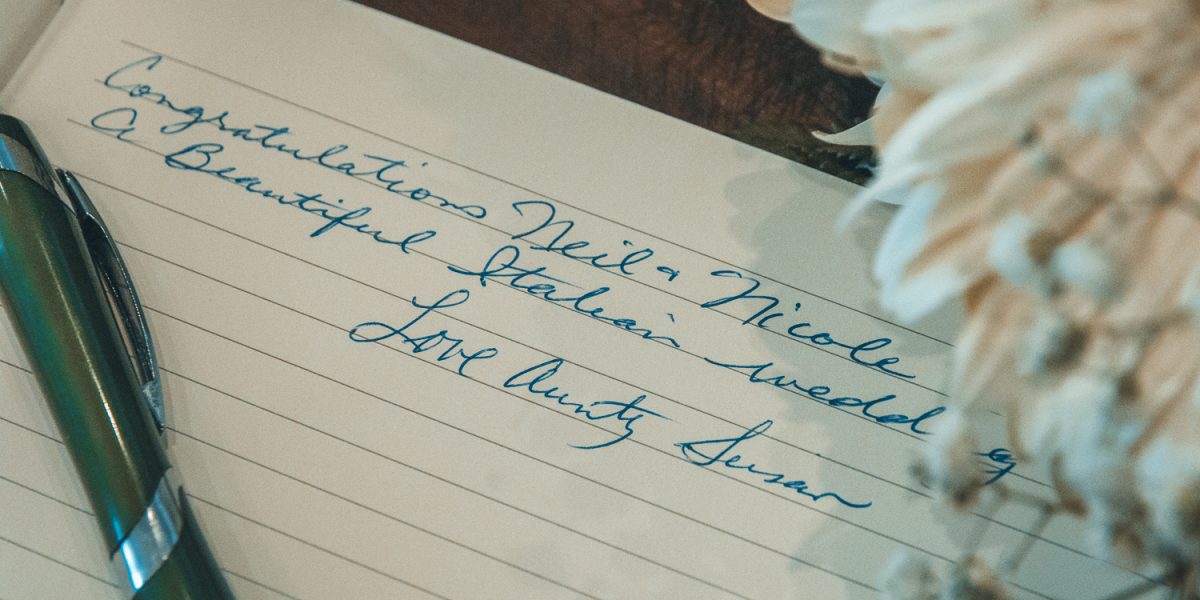 Congratulations Neil & Nicole
A Beautiful Italian wedd g
Love Aunty Susan